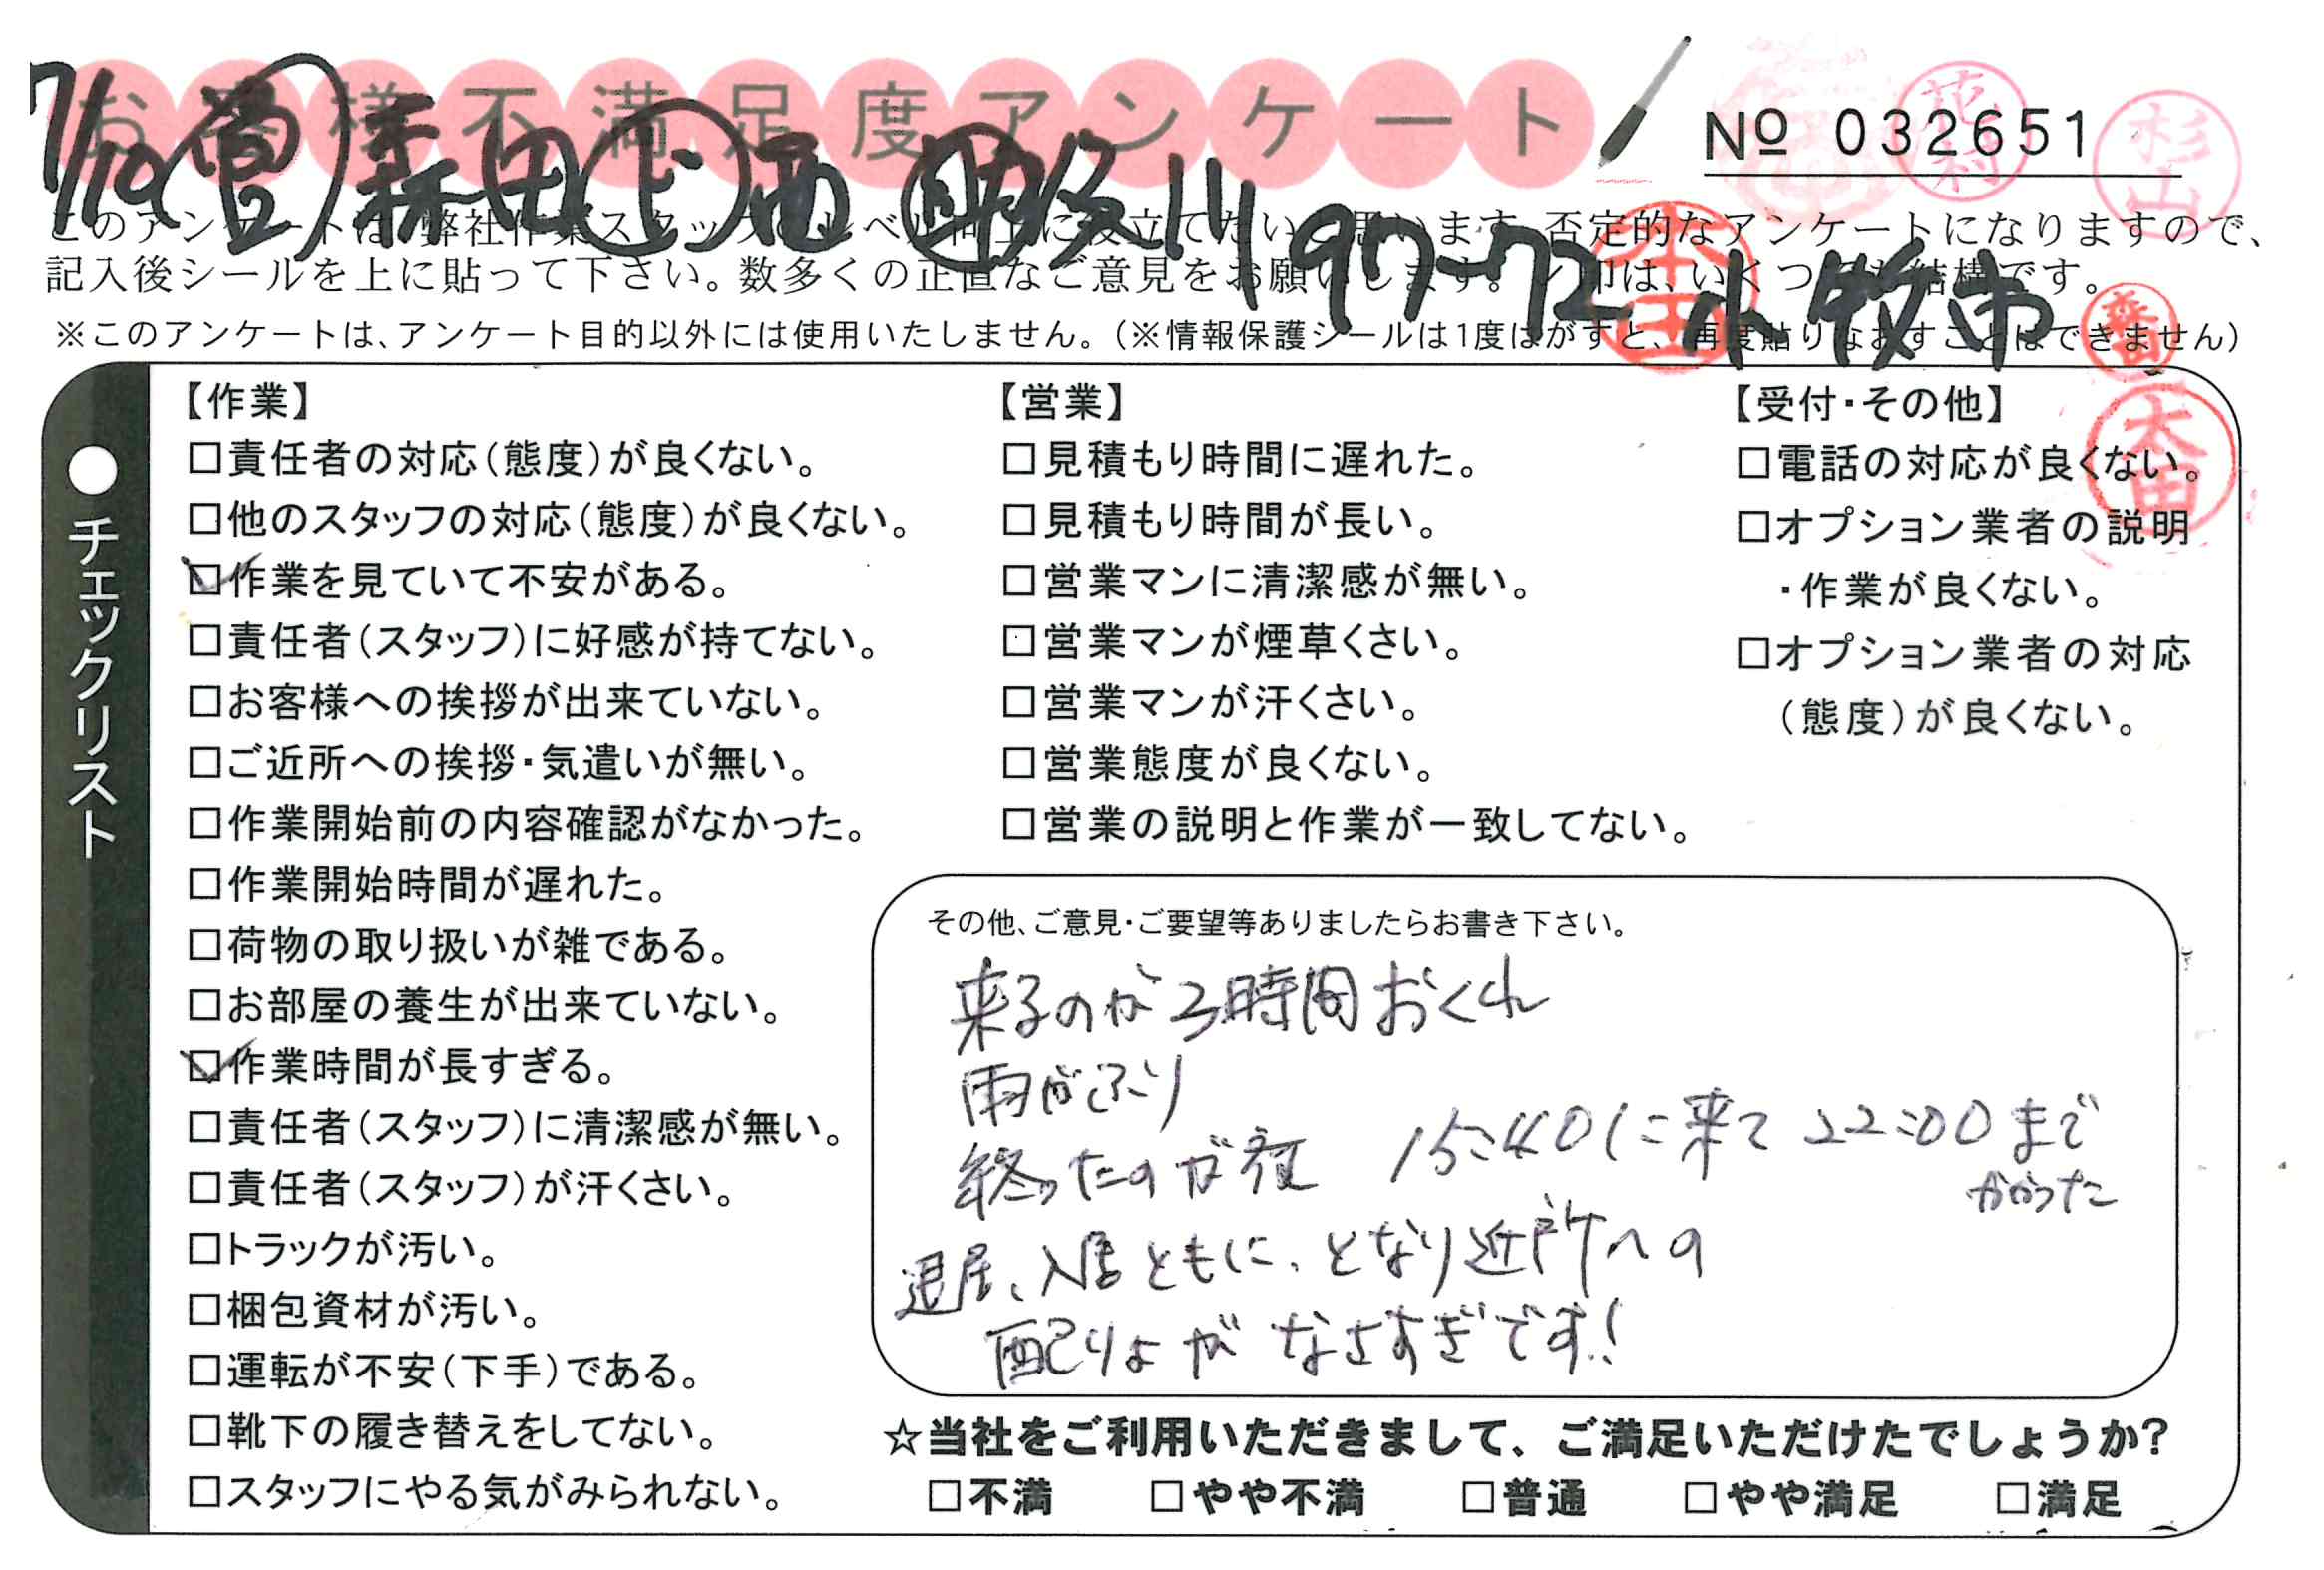 お客様不満足度アンケート
№ 032651
花村
杉山
7/10 営2 森田 上西 助 久川 97-72 小牧市
このアンケートは、弊社作業スタッフのレベル向上に役立てたいと思います。否定的なアンケートになりますので、
記入後シールを上に貼って下さい。数多くの正直なご意見をお願いします。レ印は、いくつでも結構です。
※このアンケートは、アンケート目的以外には使用いたしません。（※情報保護シールは1度はがすと、再度貼りなおすことはできません）
本田
森田
太田
●チェックリスト
【作業】
□責任者の対応（態度）が良くない。
□他のスタッフの対応（態度）が良くない。
☑作業を見ていて不安がある。
□責任者（スタッフ）に好感が持てない。
□お客様への挨拶が出来ていない。
□ご近所への挨拶・気遣いが無い。
□作業開始前の内容確認がなかった。
□作業開始時間が遅れた。
□荷物の取り扱いが雑である。
□お部屋の養生が出来ていない。
☑作業時間が長すぎる。
□責任者（スタッフ）に清潔感が無い。
□責任者（スタッフ）が汗くさい。
□トラックが汚い。
□梱包資材が汚い。
□運転が不安（下手）である。
□靴下の履き替えをしてない。
□スタッフにやる気がみられない。
【営業】
□見積もり時間に遅れた。
□見積もり時間が長い。
□営業マンに清潔感が無い。
□営業マンが煙草くさい。
□営業マンが汗くさい。
□営業態度が良くない。
□営業の説明と作業が一致してない。
【受付・その他】
□電話の対応が良くない。
□オプション業者の説明
・作業が良くない。
□オプション業者の対応
（態度）が良くない。
その他、ご意見・ご要望等ありましたらお書き下さい。
来るのが3時間おくれ
雨がふり
終ったのが夜 15:40に来て 22:00まで
かかった
退居、入居ともに、となり近所への
配りょが なさすぎです!
☆当社をご利用いただきまして、ご満足いただけたでしょうか?
□不満 □やや不満 □普通 □やや満足 □満足